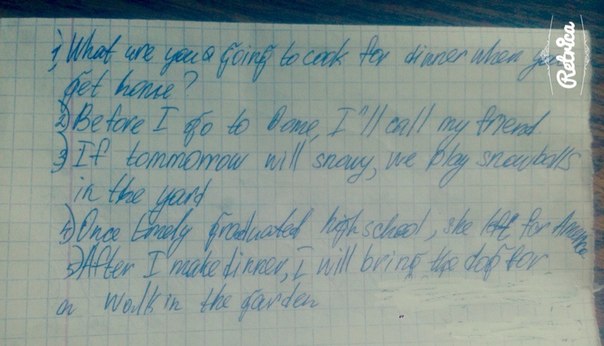 1) What are you going to cook for dinner when you
get home?
2) Before I go to Rome, I'll call my friend
3) If tommorrow will snowy, we play snowballs
in the yard
4) Once Emely graduated high school, she left for America
5) After I make dinner, i will bring the dog for
a walk in the garden
Retrica